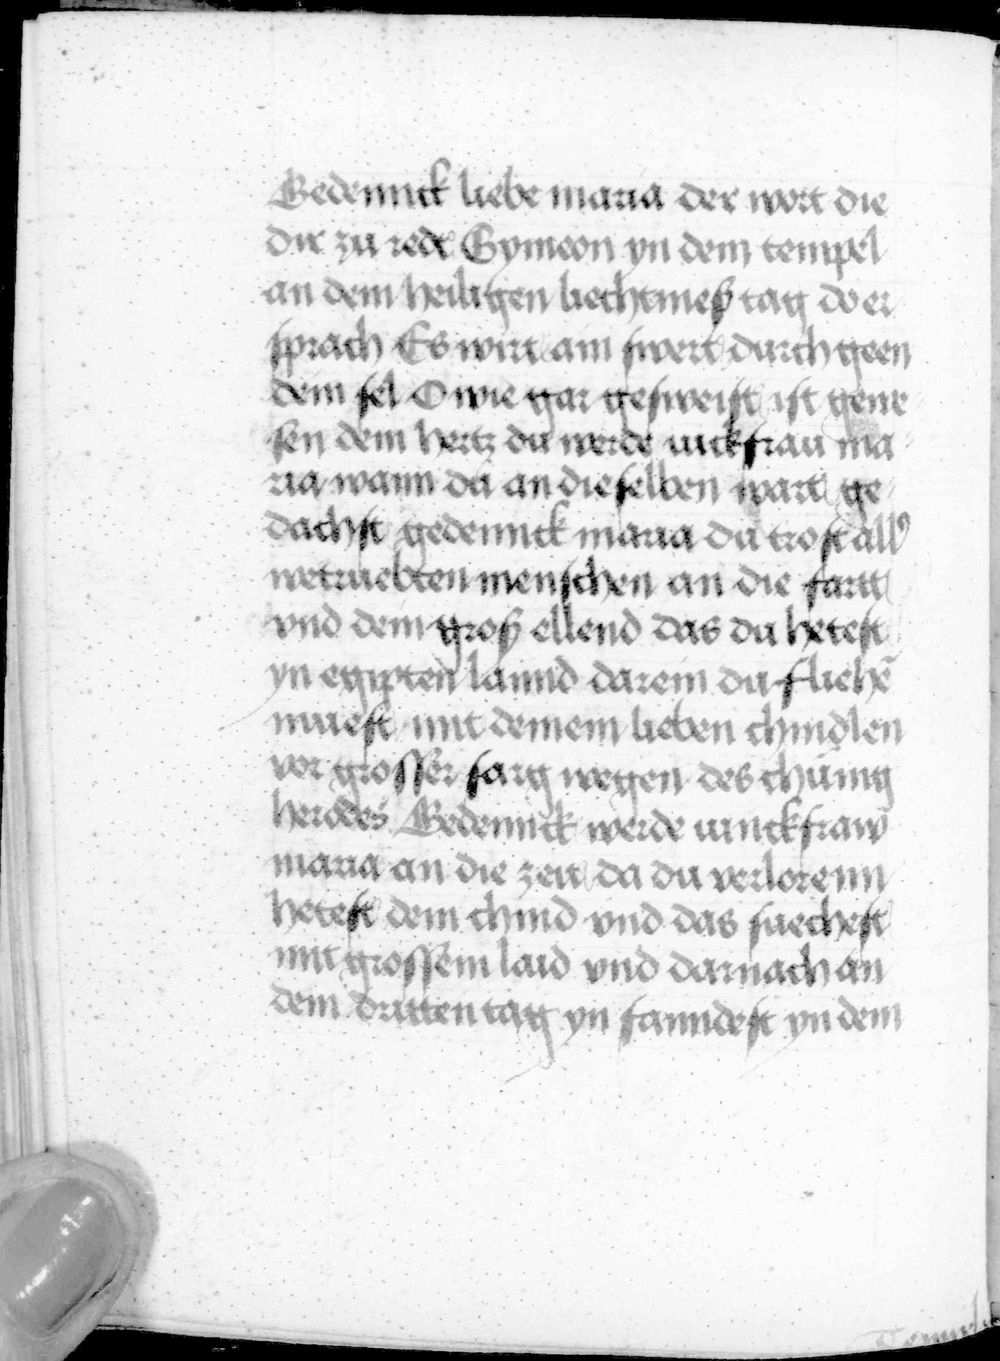 Gedennck liebe maria der wort die
dir zu redt Symeon yn dem tempel
an dem heiligen liechtmeß tag do er
sprach Es wirt ain swert durch geen
dein sel O wie gar gesweist ist gene
sen dein hertz du werde iuckfrau ma
ria wann du an die selben wart ge
dachst gedennck maria du trost all⁹
wetruebten menschen an die fartt
vnd dein groß ellend das du hetest
yn egipten lannd darein du fliehē
muest mit deinem lieben chindlen
vor grosser sarg wegen des chünig
herodes Gedennck werde iunckfraw
maria an die zeit da du verlorenn
hetest dein chind vnd das suechest
mit grossem laid vnd darnach an
dem dritten tag yn fanndest yn dem